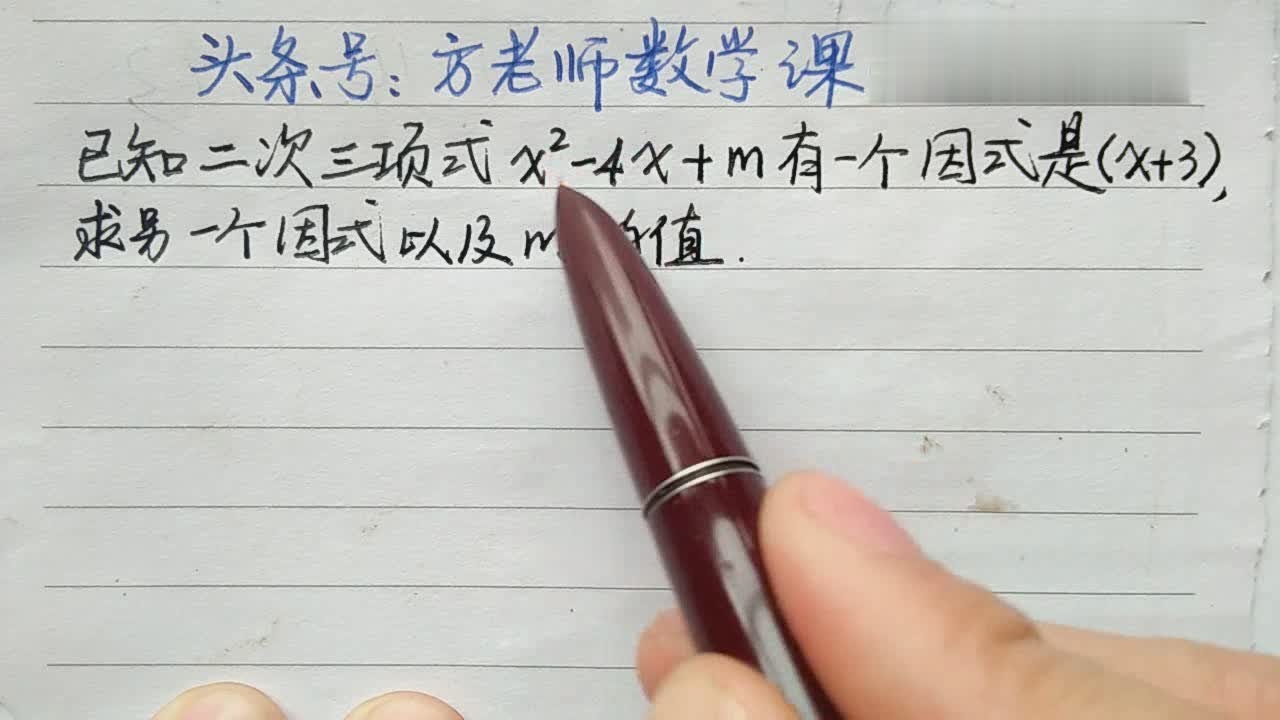 头条号:方老师数学课
已知二次三项式x²-4x+m有一个因式是(x+3),
求另一个因式以及m的值.